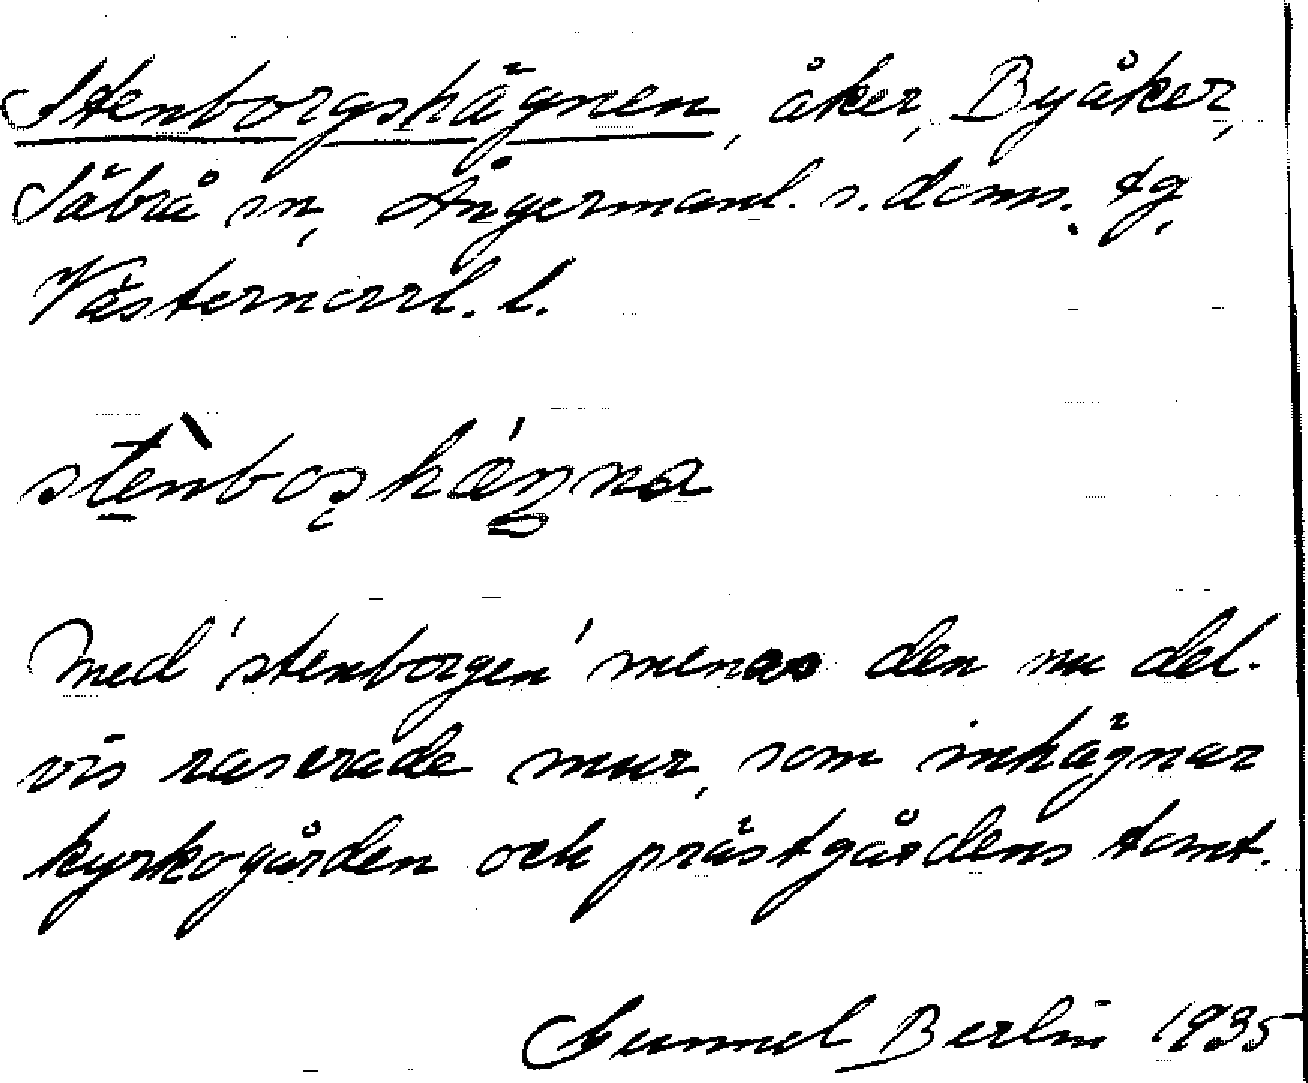 Stenborgshägnen, åker, Byåker,
Säbrå sn, Ångermanl. s. doms. tg,
Västernorrl. l.
stènboʂhæŋna
Med 'stenborgen' menas den nu del-
vis raserade mur, som inhägnar
kyrkogården och prästgårdens tomt.
Gunnel Berlin 1935